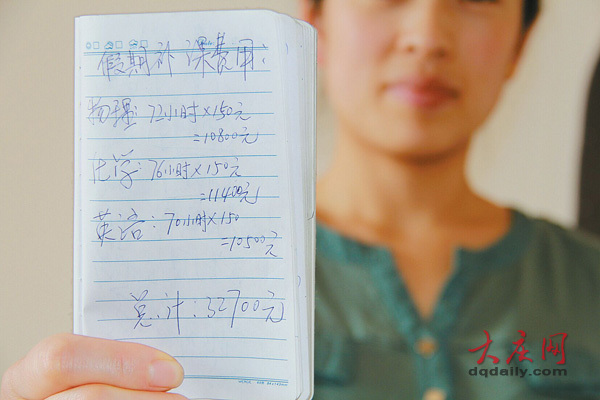 假期补课费用:
物理:72小时×150元
=10800元
化学:76小时×150元
=11400元
英语:70小时×150
=10500元
总计:32700元
大庆网
dqdaily.com